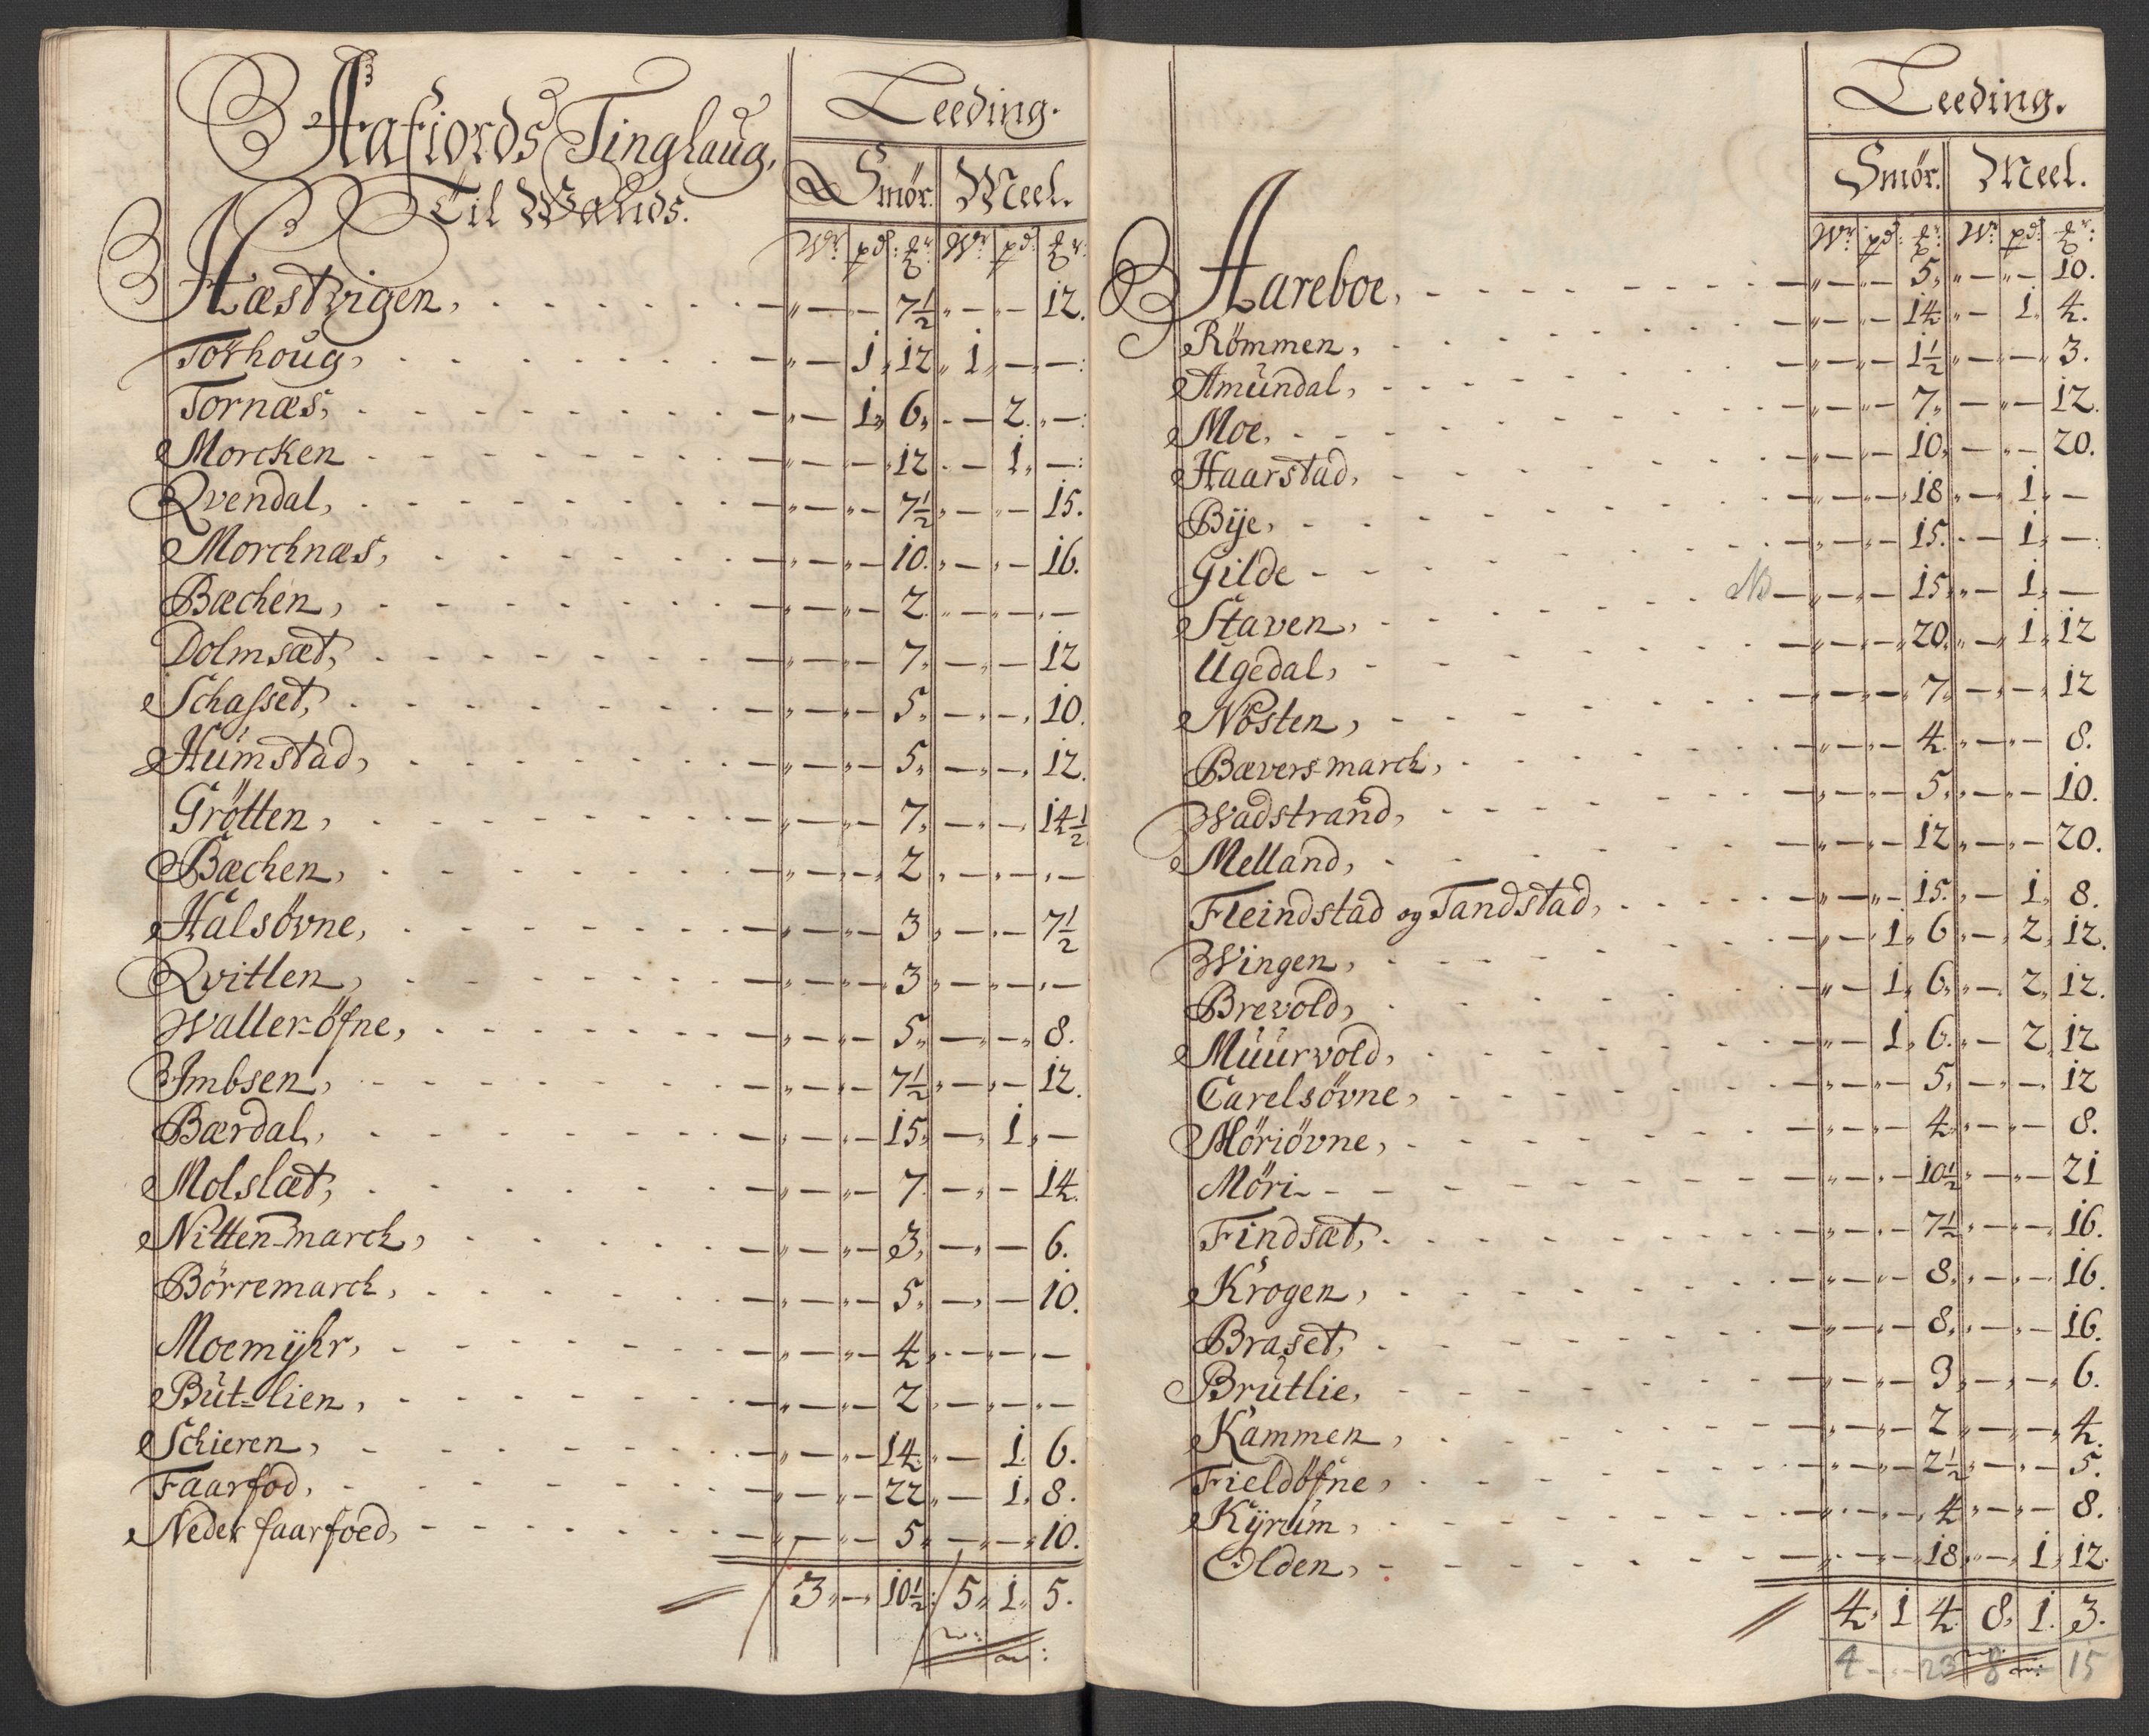 Aafiords Tinglaug,
Til Wands.
Leeding.
Smör. Meel.
Wr pd: lr: Wr pd: lr:
Hæstvigen, " — " — 7½ " — " — 12.
Torhoug, " — 1 " 12 " 1 " — " — :
Tornæs, " — 1 " 6 " — 2 " — :
Morcken " — " — 12 " — 1 " — :
Qvendal, " — " — 7½ " — " — 15.
Morchnæs, " — " — 10. " — " — 16.
Bæchen, " — " — 2 " — " — " —
Dolmsæt, " — " — 7 " — " — 12
Schasset, " — " — 5 " — " — 10.
Humstad, " — " — 5 " — " — 12.
Grötten, " — " — 7 " — " — 14½
Bæchen, " — " — 2 " — " — " —
Halsövne, " — " — 3 " — " — 7½
Qvitlen, " — " — 3 " — " — " —
Waller-öfne, " — " — 5 " — " — 8.
Imbsen, " — " — 7½ " — " — 12.
Bærdal, " — " — 15 " — 1 " —
Molslæt, " — " — 7 " — " — 14.
Nitten-march, " — " — 3 " — " — 6.
Börremarch, " — " — 5 " — " — 10.
Moemÿhr, " — " — 4 " — " — " —
But-lien, " — " — 2 " — " — " —
Schieren, " — " — 14 " — 1 6.
Faarfod, " — " — 22 " — 1 " 8.
Neder faarfoed, " — " — 5 " — " — 10.
3 " — 10½ : 5 " 1 " 5.
Leeding.
Smör. Meel.
Wr pd: lr: Wr pd: lr:
Aareboe, " — " — 5 " — " — 10.
Römmen, " — " — 14 " — 1 " 4.
Amundal, " — " — 1½ " — " — 3.
Moe, " — " — 7 " — " — 12.
Haarstad, " — " — 10 " — " — 20.
Bije, " — " — 18 " — 1 " —
Gilde " — " — 15. " — 1 " — :
Staven, NB " — " — 15 " — 1 " —
Ugedal, " — " — 20 " — 1 " 12
Nösten, " — " — 7 " — " — 12
Bævers-march, " — " — 4 " — " — 8.
Wadstrand, " — " — 5 " — " — 10.
Melland, " — " — 12 " — " — 20.
Fleindstad og Tandstad, " — " — 15. " — 1 " 8.
Wingen, " — 1 " 6 " — 2 " 12.
Brevold, " — 1 " 6 " — 2 " 12.
Muurvold, " — 1 " 6. " — 2 " 12
Carelsövne, " — " — 5 " — " — 12
Möriövne, " — " — 4 " — " — 8.
Möri " — " — 10½ " — " — 21
Findsæt, " — " — 7½ " — " — 16.
Krogen, " — " — 8 " — " — 16.
Braset, " — " — 8 " — " — 16.
Brutlie, " — " — 3 " — " — 6.
Kammen, " — " — 2 " — " — 4.
Fieldöfne, " — " — 2½ " — " — 5.
Kÿrum, " — " — 4 " — " — 8.
Olden, " — " — 18 " — 1 " 12.
4 " 1 4 8 " 1. 3.
4 - - 23 8 - 15